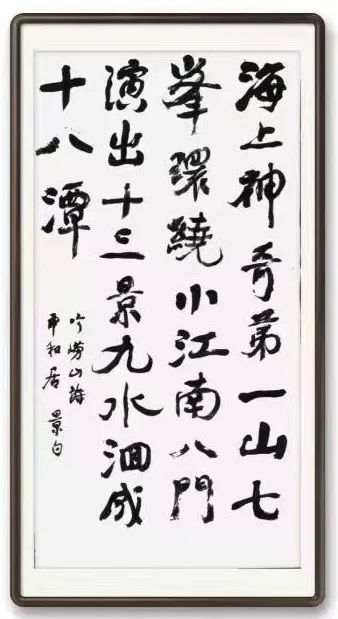 海上神奇第一山七
峯環繞小江南八門
演出十三景九水洄成
十八潭
吟嶗山詩
平和居 景白